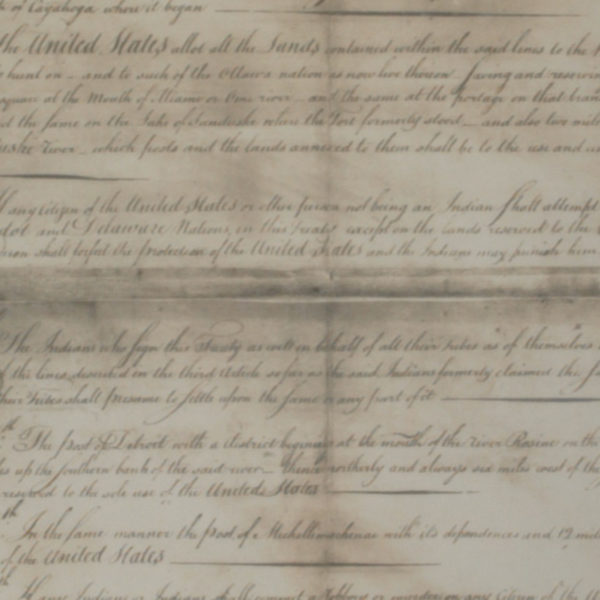 of Cayahoga where it began
the United States allot all the Lands contained within the said lines to the
to hunt on and to such of the Ottawa nation as now live thereon saving and reserving
square at the Mouth of Miami or Ome river and the same at the portage on that bran
and the same on the Lake of Sanduske where the Fort formerly stood and also two mil
uske river which posts and the lands annexed to them shall be to the use and un
If any Citizen of the United States or other person not being an Indian shall attempt
dot and Delaware Nations in this treaty except on the lands reserved to the
shall forfeit the protection of the United States and the Indians may punish him
The Indians who sign this Treaty as well in behalf of all their tribes as of themselves
the lines described in the third Article so far as the said Indians formerly claimed the
their tribes shall presume to settle upon the same or any part of it
The post of Detroit with a district beginning at the mouth of the river Rosine on the
up the southern bank of the said river thence northerly and always six miles west of the
reserved to the sole use of the United States
In the same manner the post of Michillimachenac with its dependences and 12 mil
of the United States
If any Indian or Indians shall commit a robbery or murder on any Citizen of the U